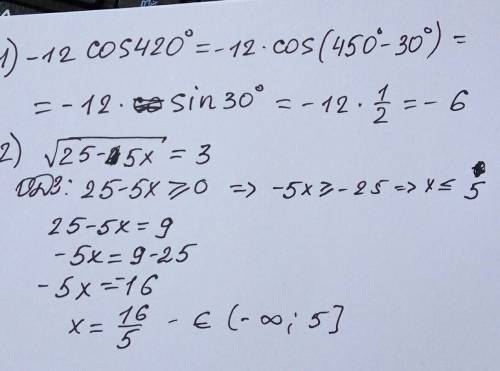 1) -12 cos420° = -12 · cos(450° - 30°) =
= -12 · sin30° = -12 · 1/2 = -6
2) √(25-5x) = 3
ОДЗ: 25-5x ≥ 0 => -5x ≥ -25 => x ≤ 5
25-5x = 9
-5x = 9-25
-5x = -16
x = 16/5 - ∈ (-∞; 5]